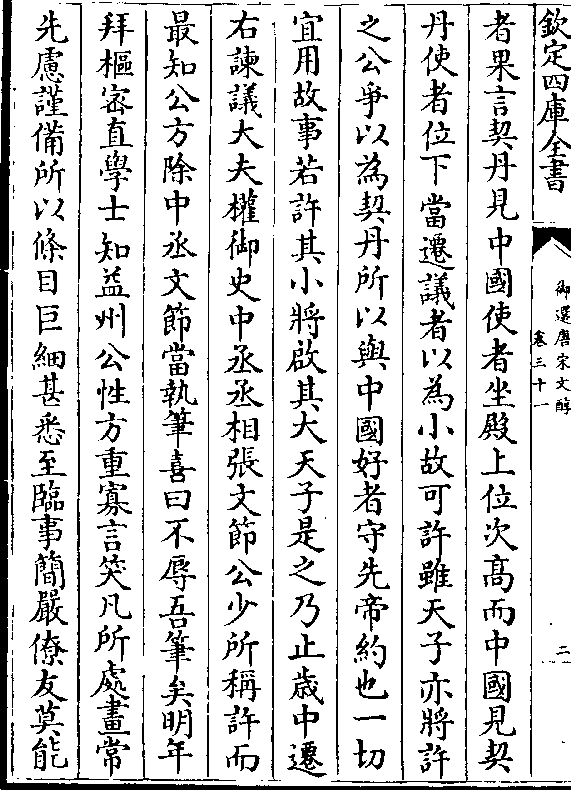 欽定四庫全書
御選唐宋文醇
卷三十一
二
者果言契丹見中國使者坐殿上位次高而中國見契
丹使者位下當遷議者以為小故可許雖天子亦將許
之公爭以為契丹所以與中國好者守先帝約也一切
宜用故事若許其小將啟其大天子是之乃止歲中遷
右諫議大夫權御史中丞丞相張文節公少所稱許而
最知公方除中丞文節當執筆喜曰不辱吾筆矣明年
拜樞密直學士知益州公性方重寡言笑凡所處畫常
先慮謹備所以條目巨細甚悉至臨事簡嚴僚友莫能